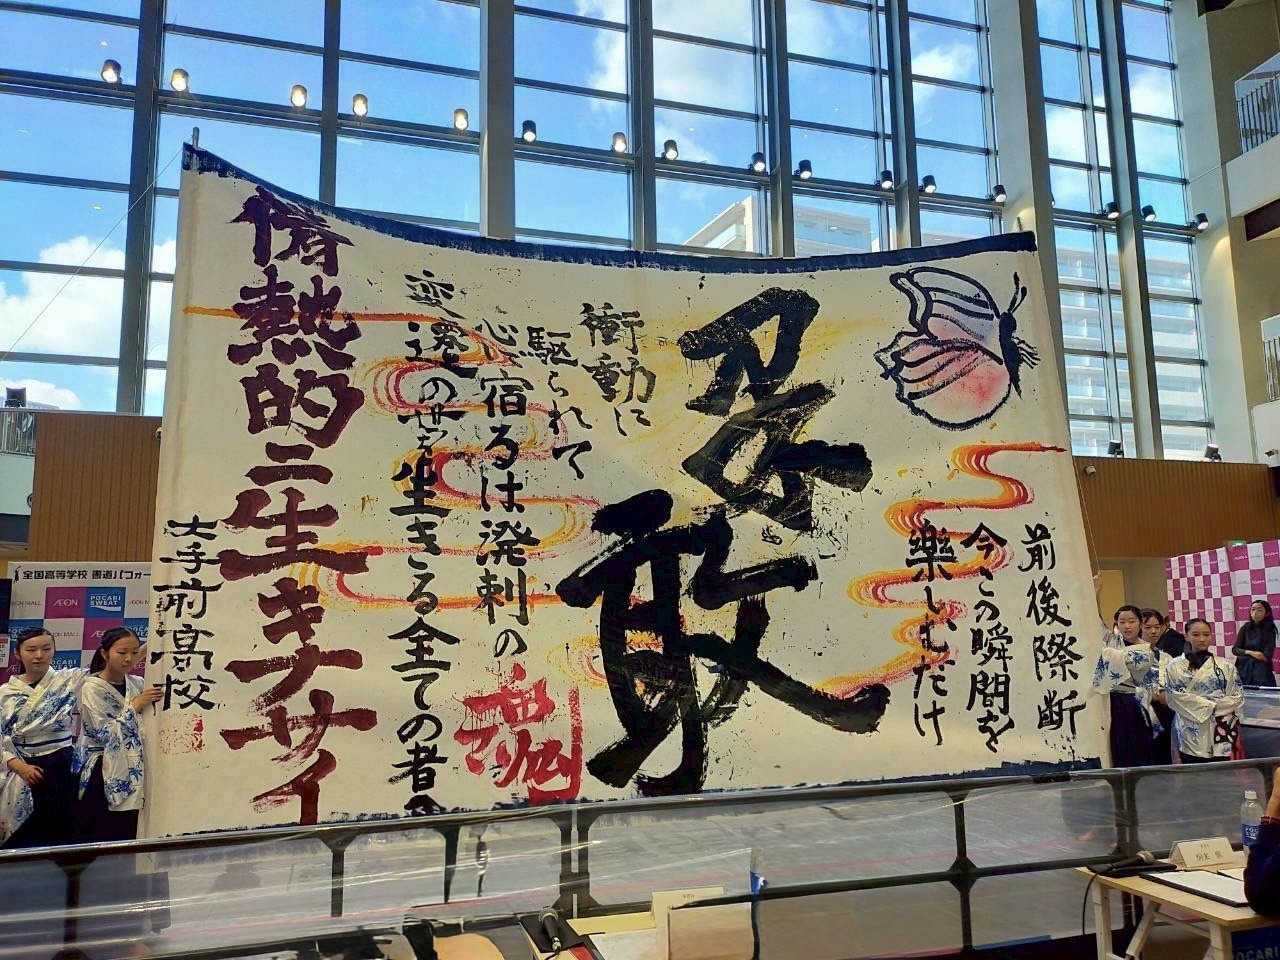 前後際断
今この瞬間を
楽しむだけ
敢
衝動に
駆られて
心宿るは溌剌の魂
変遷の世を生きる全ての者へ
情熱的ニ生キナサイ
大手前高校
全国高等学校 書道
AEON MALL
AEON
POCARI
SWEAT